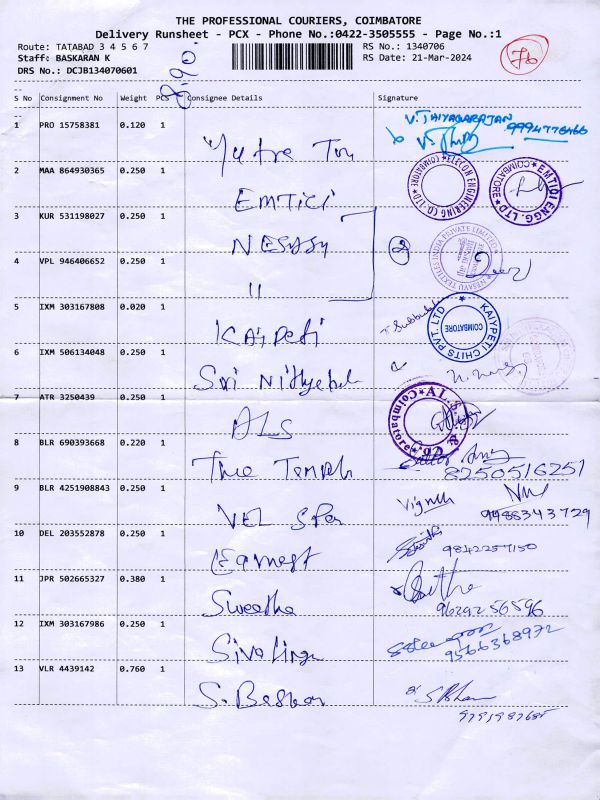 THE PROFESSIONAL COURIERS, COIMBATORE
Delivery Runsheet - PCX - Phone No.:0422-3505555 - Page No.:1
Route: TATABAD 3 4 5 6 7
RS No.: 1340706
Staff: BASKARAN K
RS Date: 21-Mar-2024
DRS No.: DCJB134070601
76
8.90
S No Consignment No Weight PCS Consignee Details Signature
1 PRO 15758381 0.120 1
V. THIYAGARAJAN
9994778466
2 MAA 864930365 0.250 1
EMTICI
COIMBATORE TELECON ENGINEERING CO. LTD
EMTICI ENGG. LTD COIMBATORE
3 KUR 531198027 0.250 1
2
NESAVU TEXTILES INDIA PRIVATE LIMITED
4 VPL 946406652 0.250 1
"
5 IXM 303167808 0.020 1
Kaipeti
KAIYPETI CHITS PVT. LTD
COIMBATORE
6 IXM 506134048 0.250 1
Sri
7 ATR 3250439 0.250 1
ALS
A.L.S. & Co. Coimbatore
8 BLR 690393668 0.220 1
The
8250516251
9 BLR 4251908843 0.250 1
VEL
Vignesh
9988343729
10 DEL 203552878 0.250 1
Earnest
9842257150
11 JPR 502665327 0.380 1
Swetha
9629256596
12 IXM 303167986 0.250 1
Sivalinga
9566368972
13 VLR 4439142 0.760 1
S. Baskar
9791987685